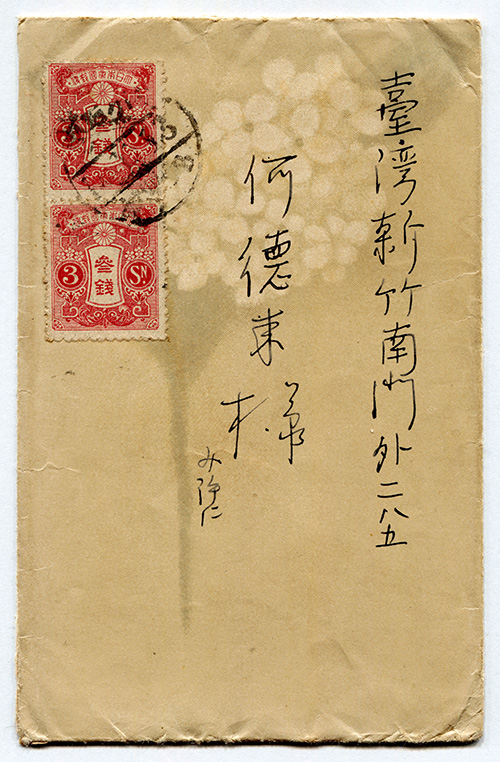 臺湾新竹南門外二八五
何德東様
大日本帝國郵便
3 参錢 Sn.
大日本帝國郵便
3 参錢 Sn.